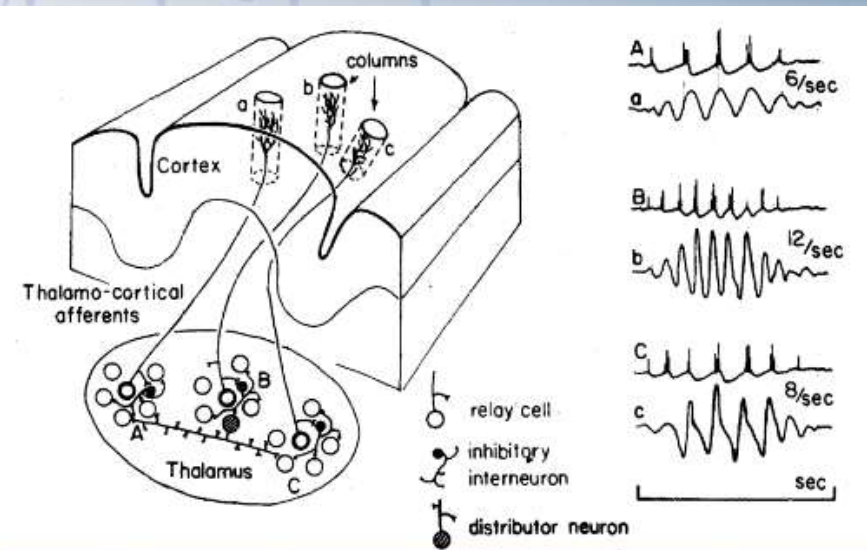 columns
a
b
c
Cortex
Thalamo-cortical
afferents
A
B
C
Thalamus
relay cell
inhibitory
interneuron
distributor neuron
A
6/sec
a
B
12/sec
b
C
8/sec
c
sec